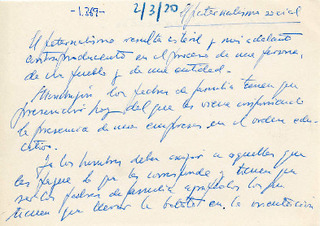 -1.267-
2/3/70 El paternalismo social
El paternalismo resulta estéril y más adelante
contraproducente en el proceso de una persona,
de un pueblo y de una entidad.
los padres de familia tienen que
hoy del que les viene
la presencia de una empresa en el orden edu-
cativo.
Ya los hombres deben exigir a aquellos que
les pague lo que les corresponde y tienen que
ser los padres de familia los que
tienen que llevar la en la orientación